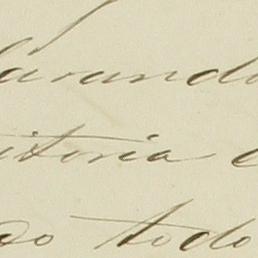 arando
itoria e
do todo